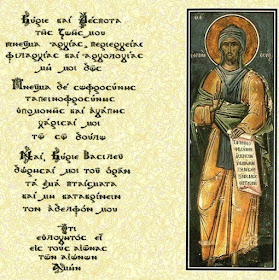 Κύριε καὶ Δέσποτα
τῆς ζωῆς μου
πνεῦμα ἀργίας, περιεργείας
φιλαρχίας καὶ ἀργολογίας
μή μοι δῷς
Πνεῦμα δὲ σωφροσύνης
ταπεινοφροσύνης
ὑπομονῆς καὶ ἀγάπης
χάρισαί μοι
τῷ σῷ δούλῳ
Ναί, Κύριε Βασιλεῦ
δώρησαί μοι τοῦ ὁρᾶν
τὰ ἐμὰ πταίσματα
καὶ μὴ κατακρίνειν
τὸν ἀδελφόν μου
Ὅτι
εὐλογητὸς εἶ
εἰς τοὺς αἰῶνας
τῶν αἰώνων
Ἀμήν